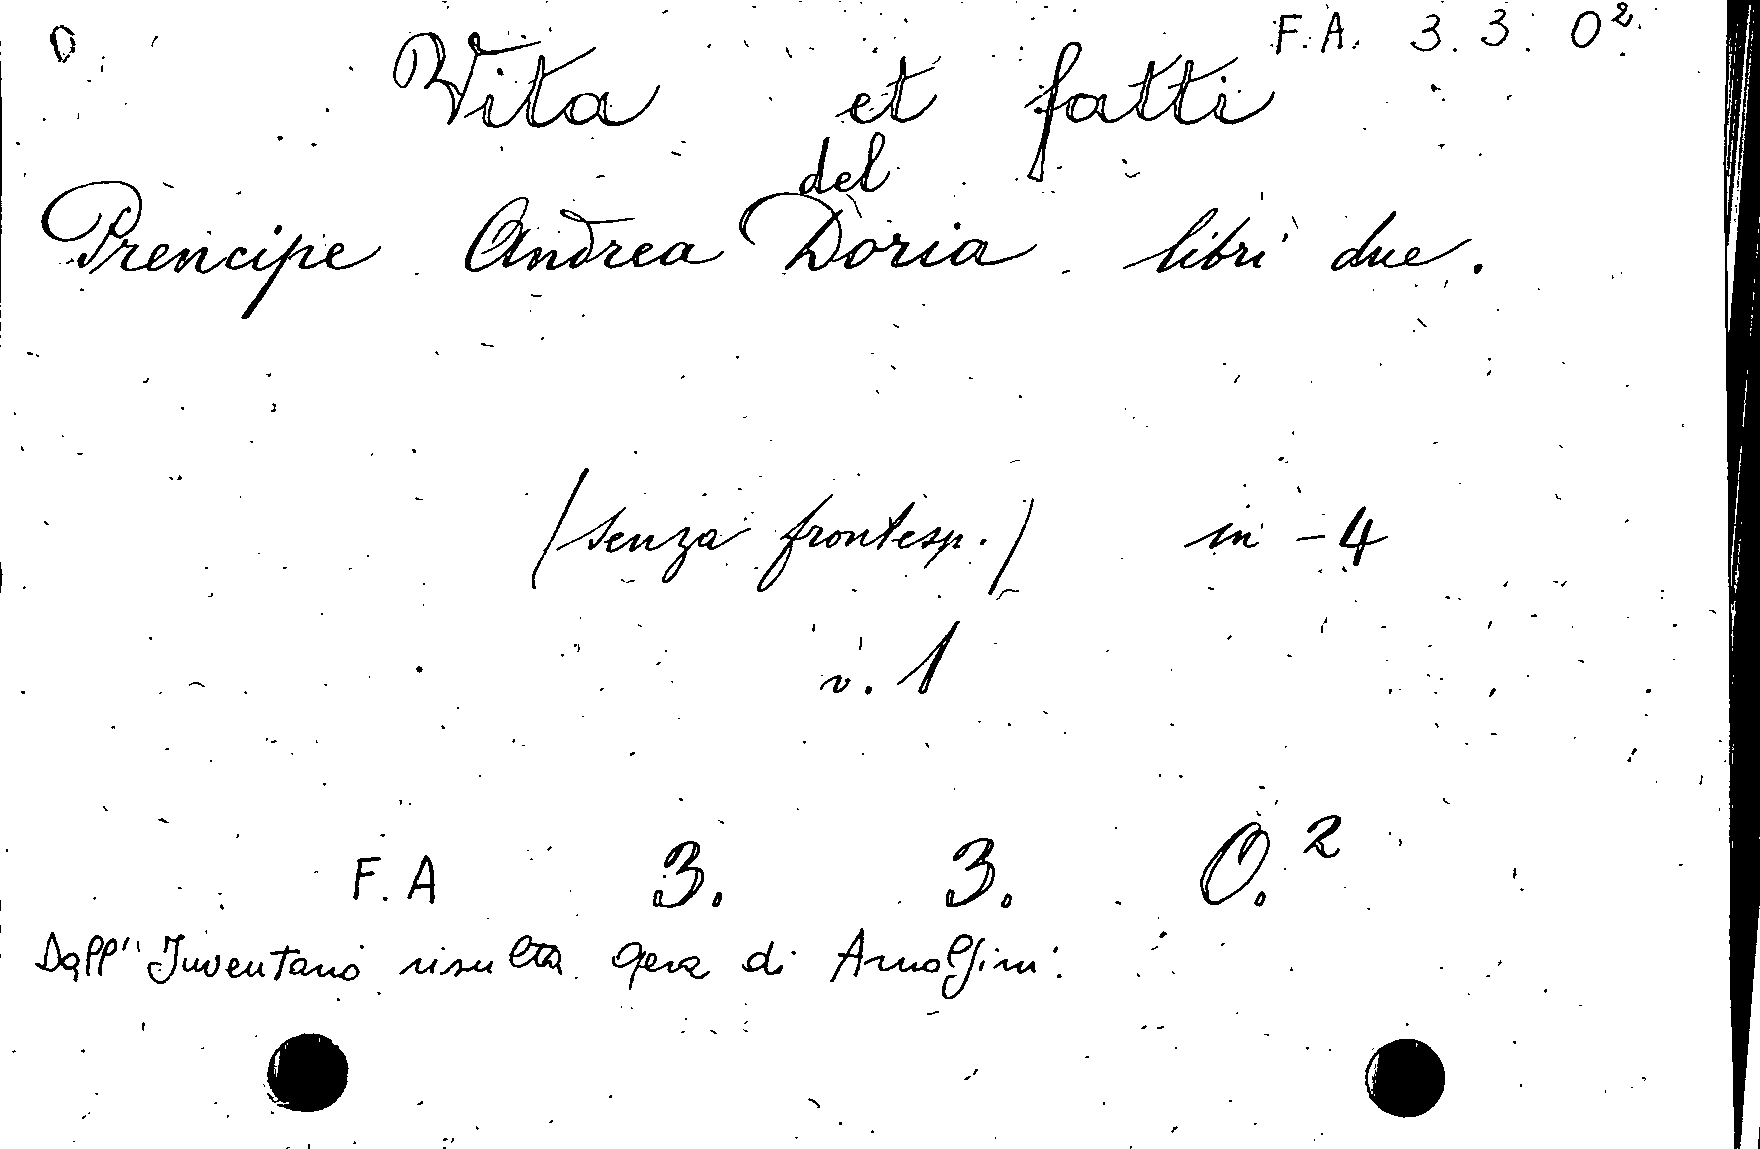 D
F. A. 3. 3. O²
Vita et fatti
del
Prencipe Andrea Doria libri due.
(senza frontesp.) in -4
v. 1
F. A 3. 3. O.²
Dall'Inventario risulta opera di Arnolfini.